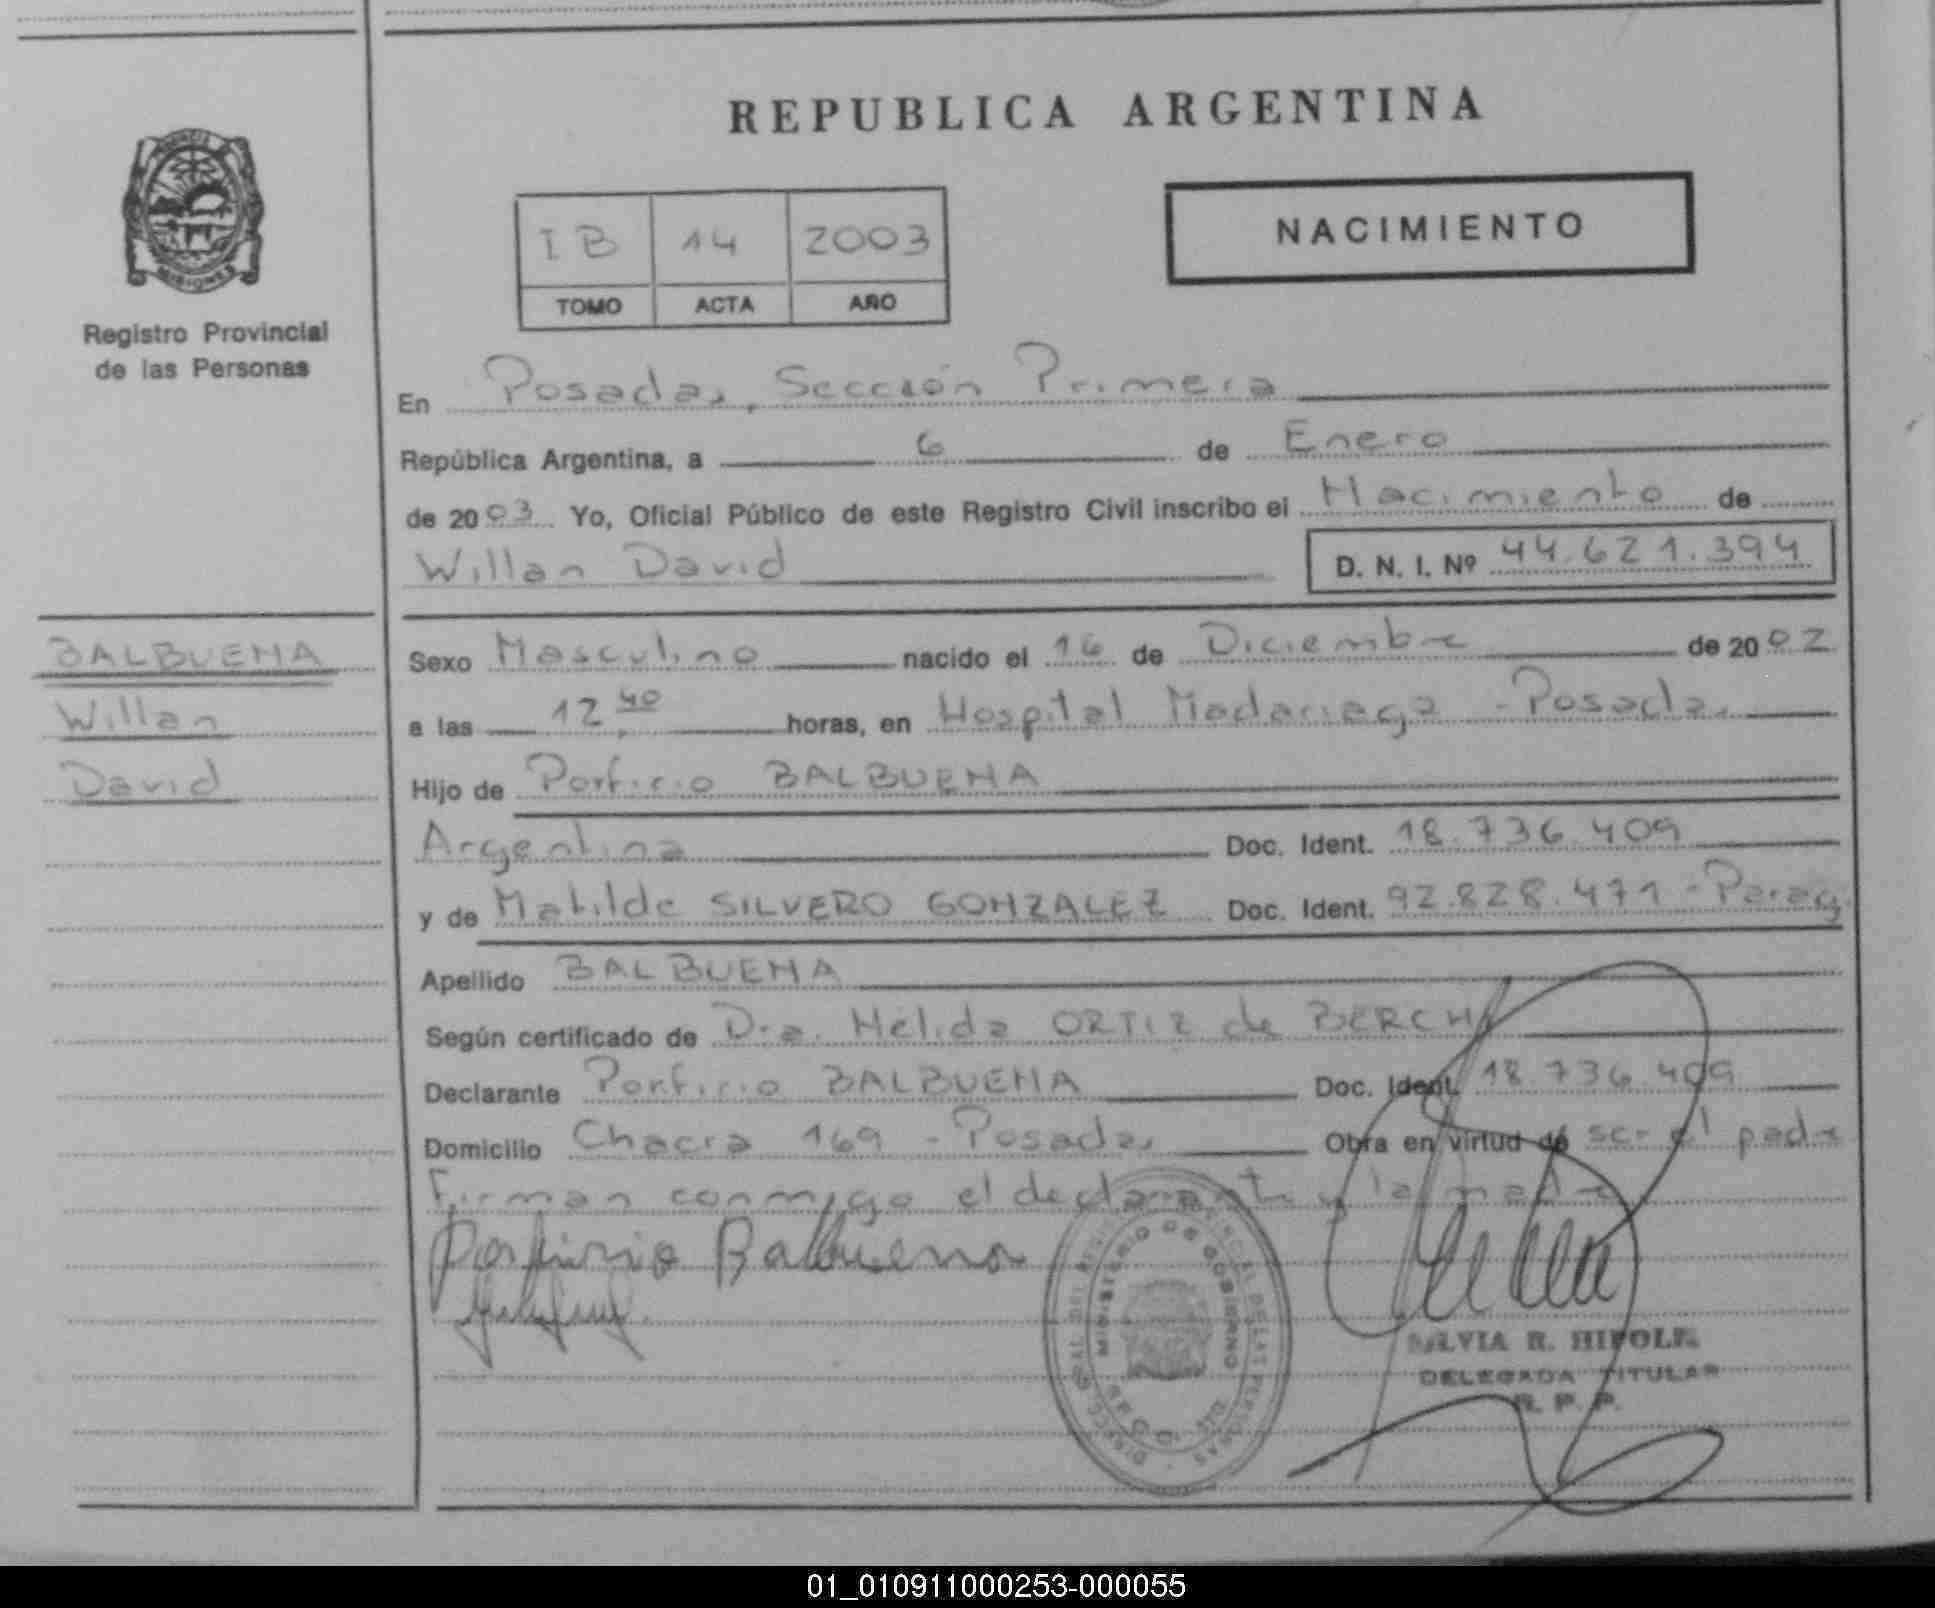 REPUBLICA ARGENTINA
NACIMIENTO
IB 14 2003
TOMO ACTA AÑO
Registro Provincial
de las Personas
En Posadas, Sección Primera
República Argentina, a 6 de Enero
de 2003 Yo, Oficial Público de este Registro Civil inscribo el Nacimiento de
Willan David D. N. I. Nº 44.621.394
BALBUENA
Willan
David
Sexo Masculino nacido el 16 de Diciembre de 2002
a las 12,40 horas, en Hospital Madariaga - Posadas
Hijo de Porfirio BALBUENA
Argentina Doc. Ident. 18.736.409
y de Matilde SILVERO GONZALEZ Doc. Ident. 92.828.471 - Parag.
Apellido BALBUENA
Según certificado de Dra. Nélida ORTIZ de BERCHI
Declarante Porfirio BALBUENA Doc. Ident. 18.736.409
Domicilio Chacra 169 - Posadas Obra en virtud de ser el padre
Firman conmigo el declarante y la madre
Porfirio Balbuena
MINISTERIO DE GOBIERNO
SILVIA R.
DELEGADA TITULAR
R. P. P.
01_010911000253-000055